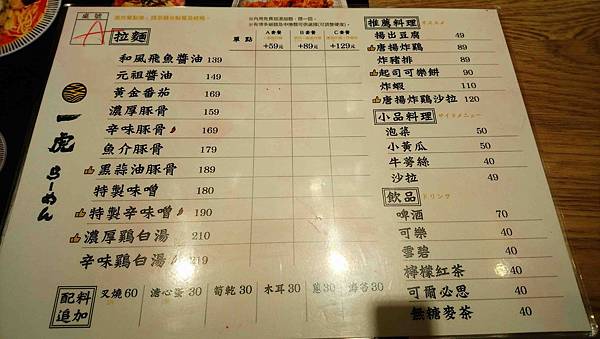 桌號
A
拉麵
單點
A套餐
+59元
B套餐
+89元
C套餐
+129元
和風飛魚醬油 139
元祖醬油 149
黃金番茄 169
濃厚豚骨 159
辛味豚骨 169
魚介豚骨 179
黑蒜油豚骨 189
特製味噌 180
特製辛味噌 190
濃厚鷄白湯 210
辛味鷄白湯 219
一虎
らーめん
配料追加
叉燒 60
溏心蛋 30
筍乾 30
木耳 30
蔥 30
海苔 30
推薦料理 オススメ
揚出豆腐 49
唐揚炸鷄 90
炸豬排 80
起司可樂餅 90
炸蝦 110
唐揚炸鷄沙拉 120
小品料理 サイドメニュー
泡菜 50
小黃瓜 50
牛蒡絲 40
沙拉 49
飲品 ドリンク
啤酒 70
可樂 40
雪碧 40
檸檬紅茶 40
可爾必思 40
無糖麥茶 40